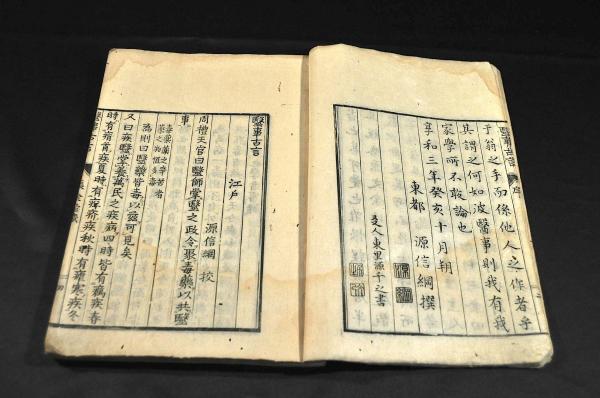 于翁之手而係他人之作者乎
其謂之何如波醫事則我有我
家學所不敢論也
享和三年癸亥十月朔
東都 源信綱撰
友人東里源千之書
醫事古言
江戸 源信綱 校
周禮天官曰醫師掌醫之政令聚毒藥以共醫
事
毒藥藥之辛苦者
藥之物恒多毒
為則曰醫藥皆毒以茲可見矣
又曰疾醫掌養萬民之疾病四時皆有癘疾春
時有痟首疾夏時有痒疥疾秋時有瘧寒疾冬